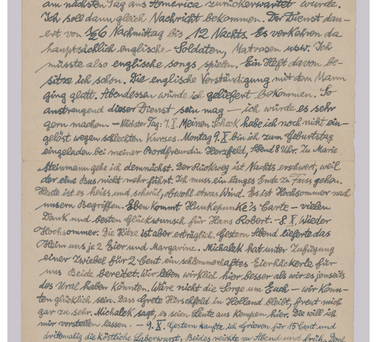 am nächsten Tag aus Amerika zurückerwartet wurde.
Ich soll dann gleich Nachricht bekommen. Der Dienst dau-
ert von 1/2 6 Nachmittag bis 12 Nachts. Es verkehren da
hauptsächlich englische Soldaten, Matrosen usw. Ich
müsste also englische songs spielen. Ein Heft davon be-
sitze ich schon. Die englische Verständigung mit dem Mann
ging glatt. Abendessen würde ich geliefert bekommen. So
anstrengend dieser Dienst sein mag – ich würde es sehr
gern machen – Nächster Tag: 7. X Meinen Scheck habe ich noch nicht ein-
gelöst wegen schlechten Kurses. Montag 9. X bin ich zum Geburtstag
eingeladen bei meiner Bordfreundin Horzfeld, Abend 8 Uhr. Zu Marie
Steinmann gehe ich demnächst. Der Rückweg ist Nachts erschwert, weil
der eine Bus nicht mehr fährt. Ich muss ein langes Ende zu Fuss gehen.
Heute ist es heiss und schwül, obwohl etwas Wind. Es ist Hochsommer nach
unsern Begriffen. Eben kommt Hunkepunke's Carte – vielen
Dank und besten Glückwunsch für Hans Robert. – 8. X. Wieder
Hochsommer. Die Hitze ist aber erträglich. Gestern Abend lieferte das
Heim uns je 2 Eier und Margarine. Michalek hat unter Zufügung
einer Zwiebel für 2 Cent ein schlemmerhaftes Eierhäckerle für
uns Beide bereitet. Wir leben wirklich hier besser als wir es jenseits
des Ural haben könnten. Wäre nicht die Sorge um Euch – wir könn-
ten glücklich sein. Dass Grete Hirschfeld in Holland bleibt, freut mich
gar zu sehr. Michalek sagt, es seien Leute aus Kempen hier. Die will ich
mir vorstellen lassen. – 9. X. Gestern kaufte ich Grieben für 15 Cent und
drittemals die köstliche Leberwurst, Beides reichte zu Abend und früh.